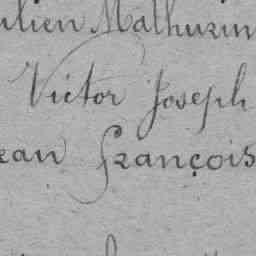 ulien Mathurin
Victor Joseph
ean François